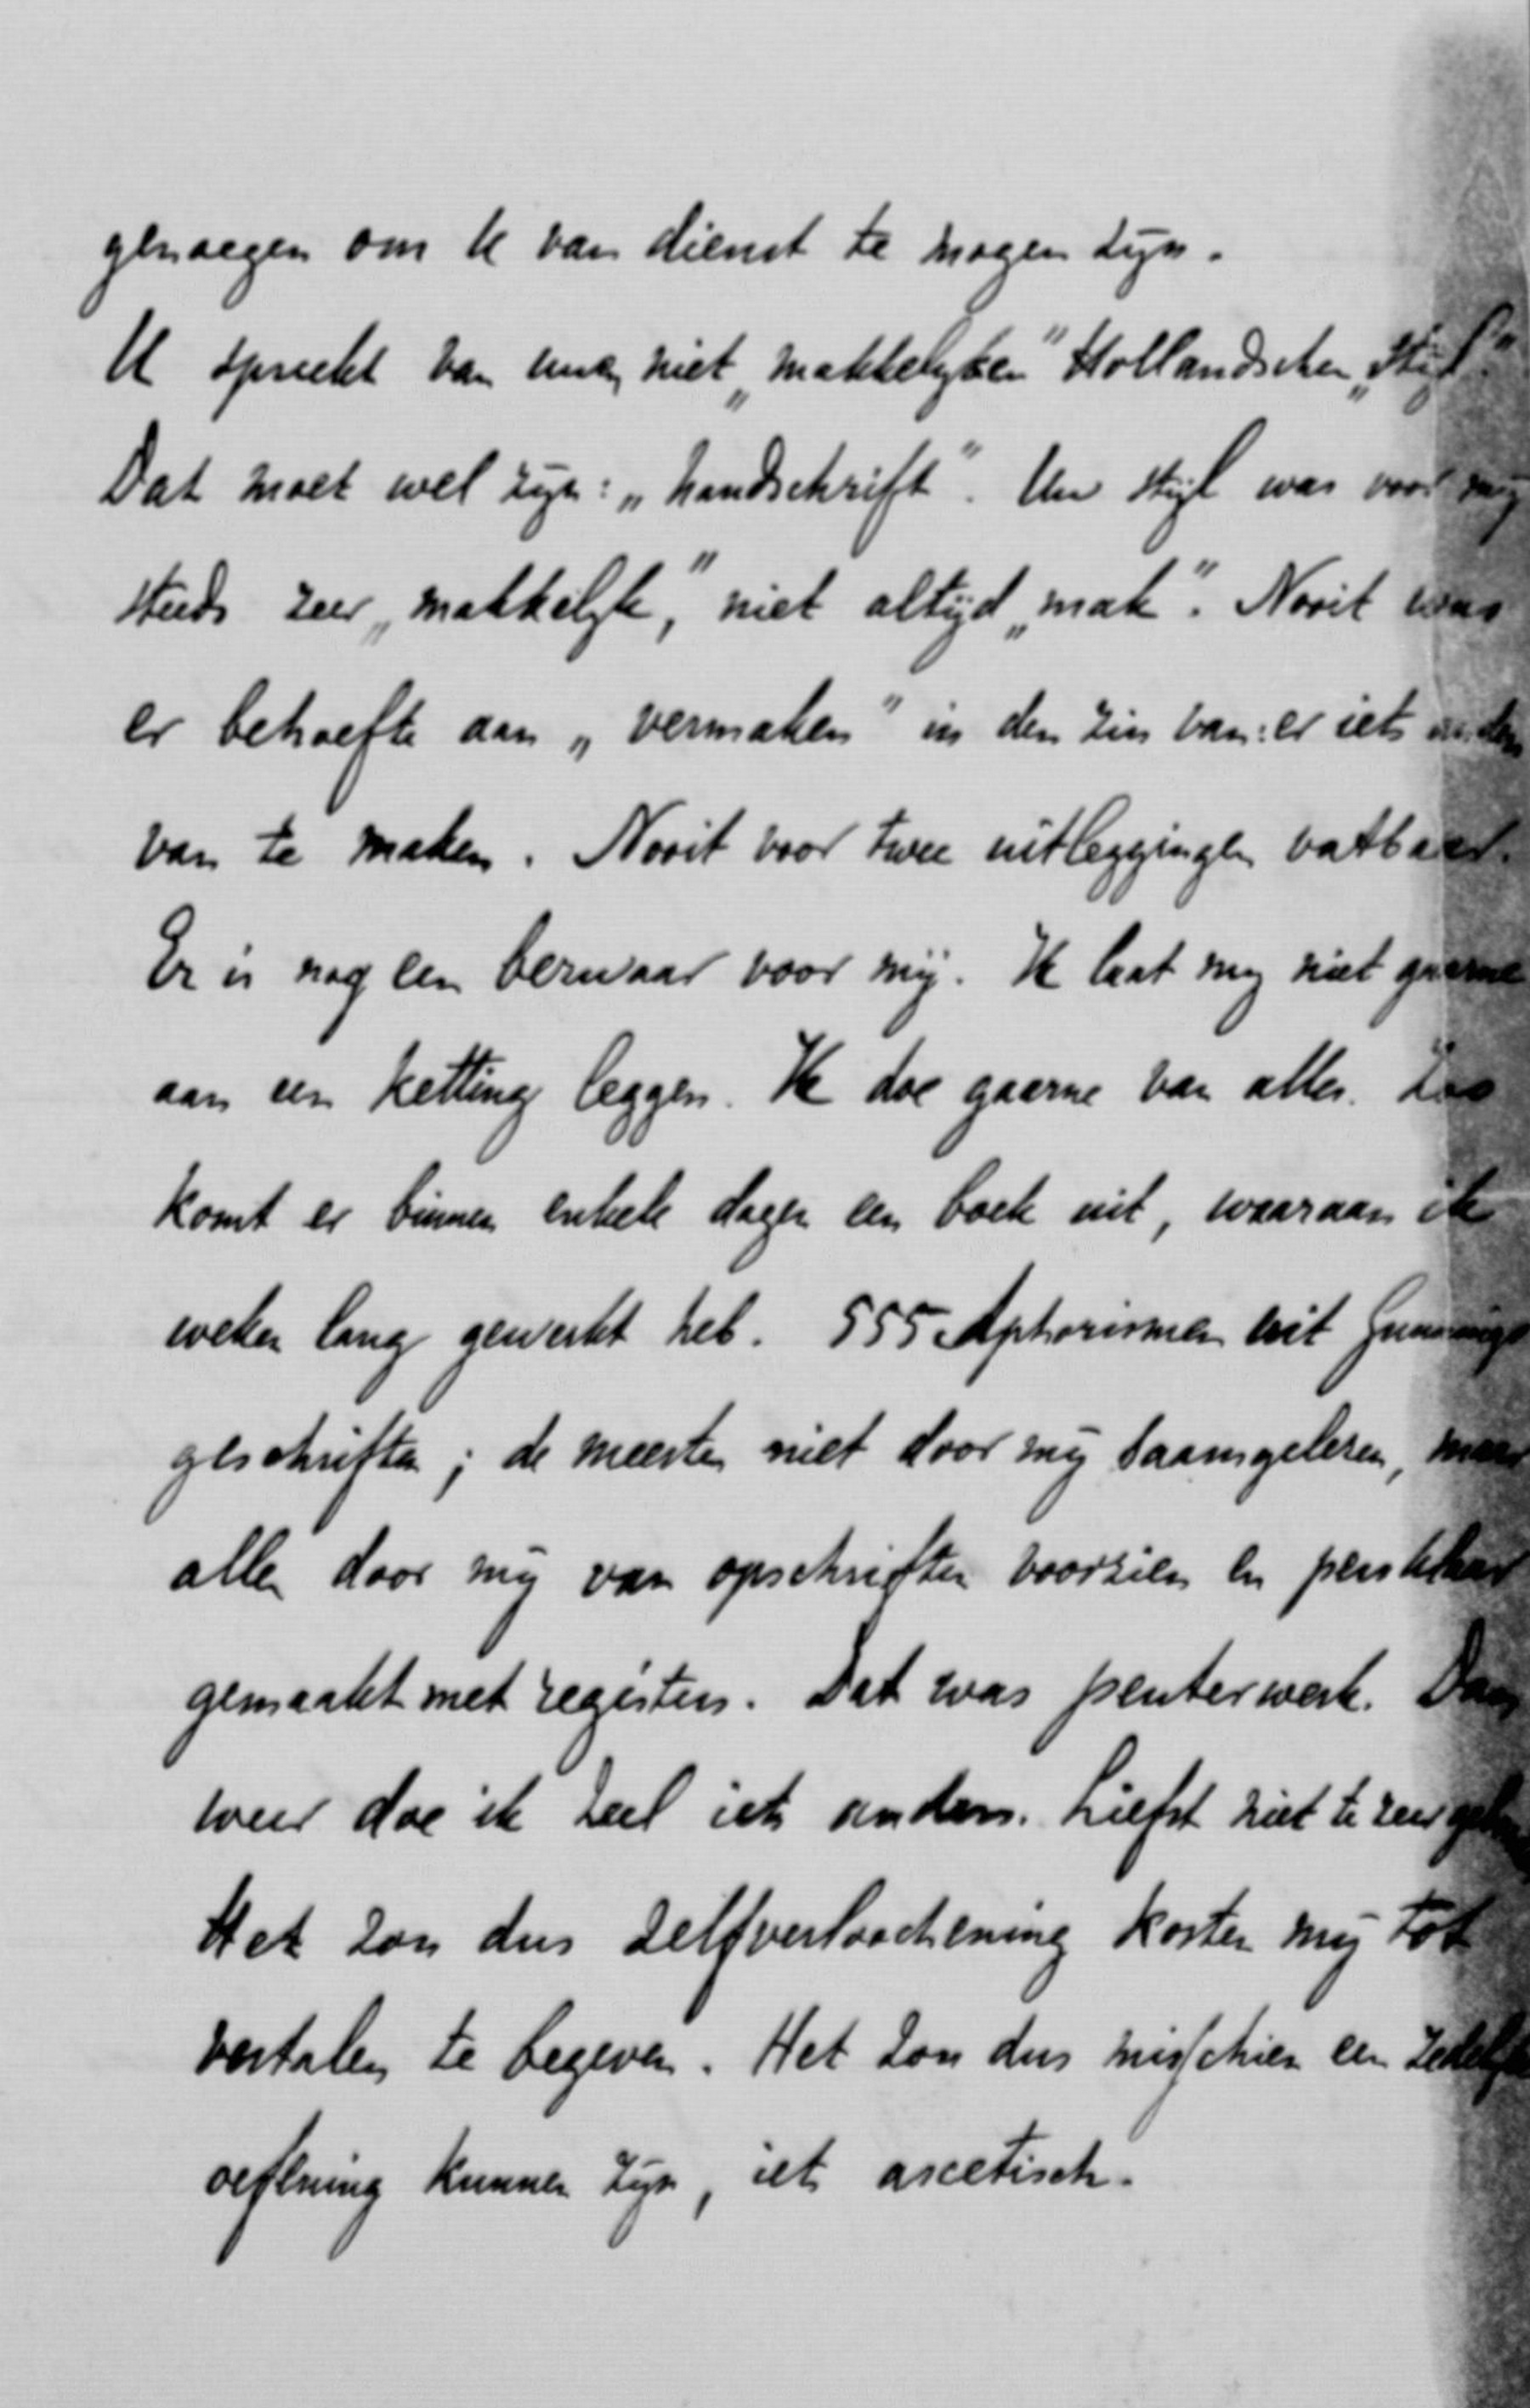 genoegen om U van dienst te mogen zyn.
U spreekt van uwe niet „makkelyken" Hollandschen „Styl".
Dat moet wel zyn: „handschrift". Uw styl was voor my
steeds zeer „makkelyk," niet altijd „mak". Nooit was
er behoefte aan „vermaken" in den zin van: er iets anders
van te maken. Nooit voor twee uitleggingen vatbaar.
Er is nog een bezwaar voor mij. Ik laat my niet gaarne
aan een ketting leggen. Ik doe gaarne van alles. Zoo
komt er binnen enkele dagen een boek uit, waaraan ik
weken lang gewerkt heb. 555 Aphorismen uit Gunnings
geschriften; de meesten niet door mij saamgelezen, maar
allen door mij van opschriften voorzien en persklaar
gemaakt met registers. Dat was peuterwerk. Dan
weer doe ik heel iets anders. Liefst niet te zeer
Het zou dus zelfverloochening kosten mij tot
vertalen te begeven. Het zou dus misschien een zedelyke
oefening kunnen zyn, iets ascetisch.